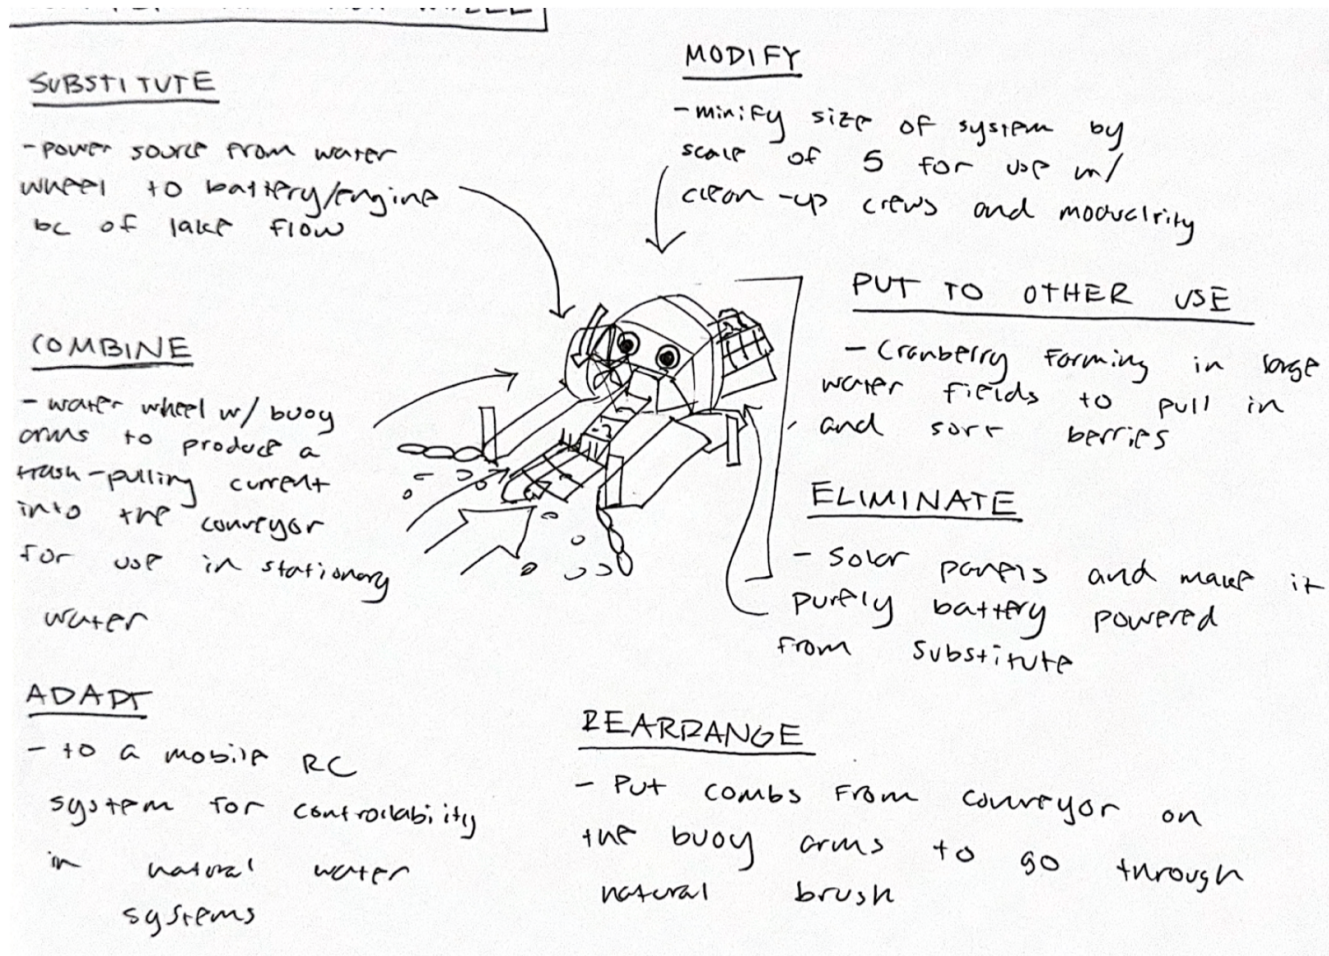 SUBSTITUTE
- power source from water
wheel to battery/engine
bc of lake flow
COMBINE
- water wheel w/ buoy
arms to produce a
trash-pulling current
into the conveyor
for use in stationary
water
ADAPT
- to a mobile RC
system for controllability
in natural water
systems
MODIFY
- minify size of system by
scale of 5 for use w/
clean-up crews and moduclrity
PUT TO OTHER USE
- Cranberry farming in large
water fields to pull in
and sort berries
ELIMINATE
- solar panels and make it
purely battery powered
from substitute
REARRANGE
- Put combs from conveyor on
the buoy arms to go through
natural brush